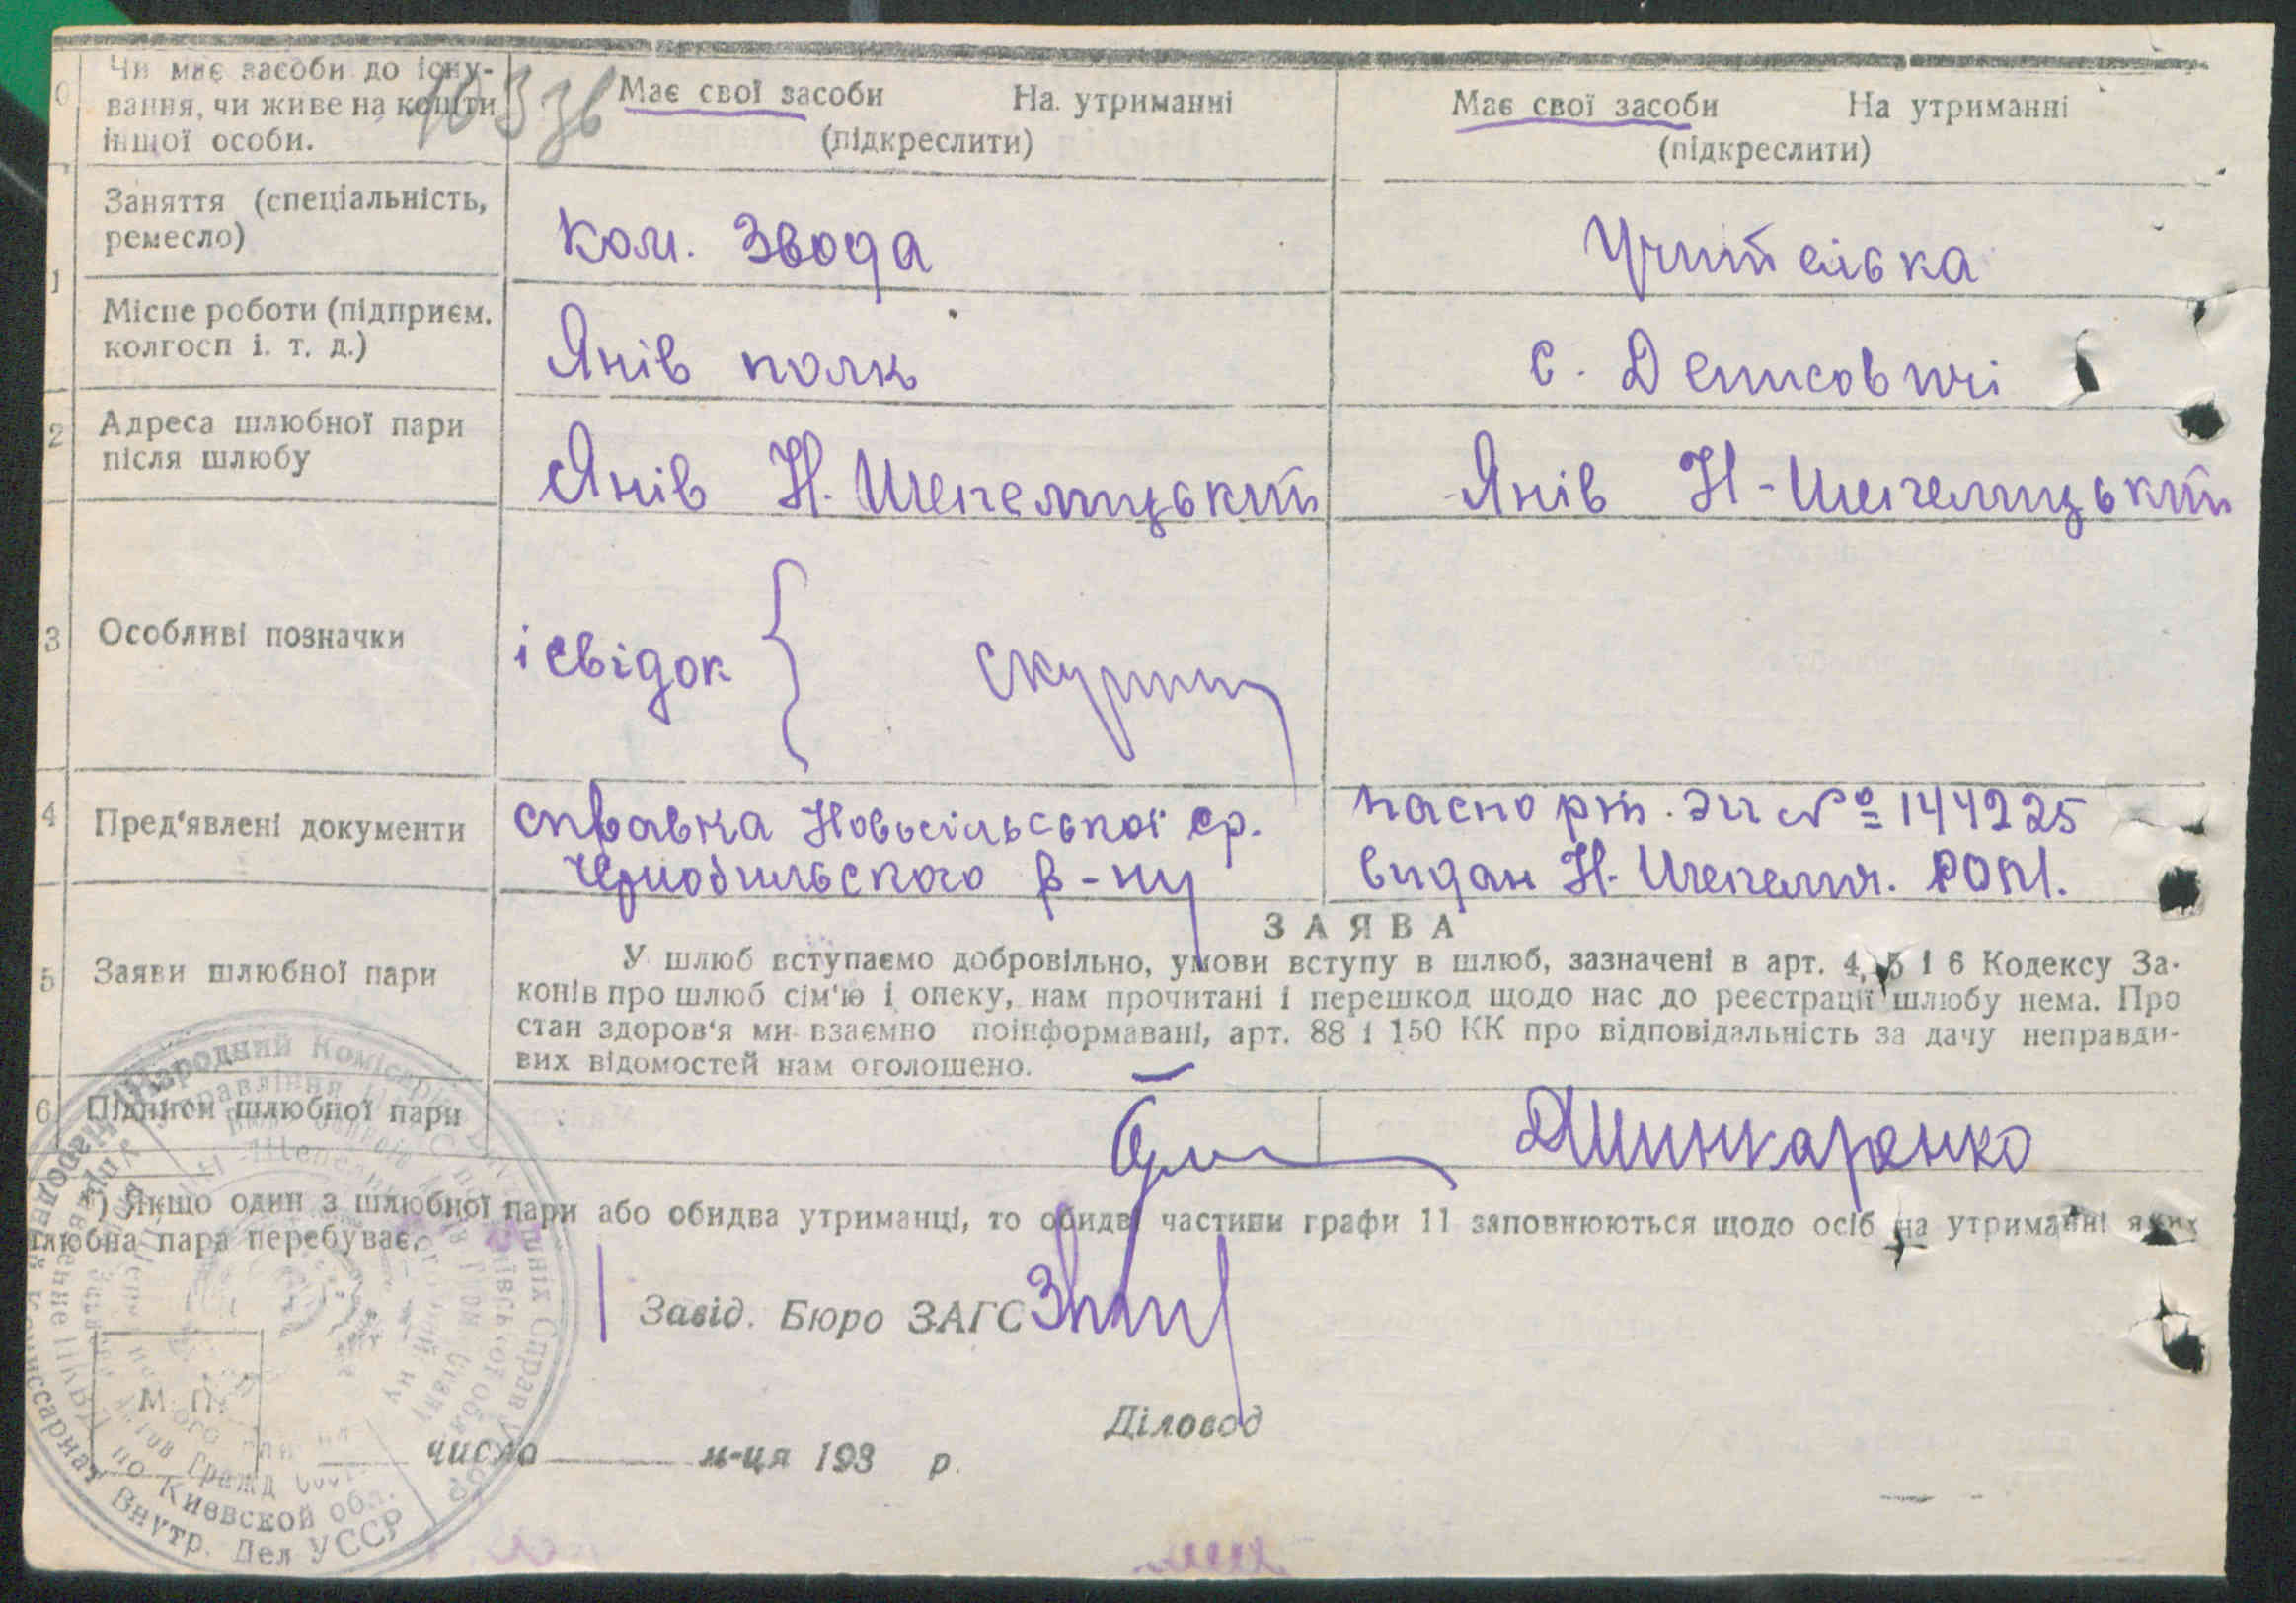 0 Чи має засоби до існу-
вання, чи живе на кошти
іншої особи.
Має свої засоби На утриманні
(підкреслити)
Має свої засоби На утриманні
(підкреслити)
1 Заняття (спеціальність,
ремесло)
ком. Звода
Учителька
Місце роботи (підприєм.
колгосп і. т. д.)
Янів полк
с. Денисовичі
2 Адреса шлюбної пари
після шлюбу
Янів Н. Шепелицький
Янів Н-Шепелицький
3 Особливі позначки
і свідок
4 Пред'явлені документи
справка Новосільської ср.
Чернобильского р-ну
паспорт. № 144225
видан Н. Шепелич.
5 Заяви шлюбної пари
ЗАЯВА
У шлюб вступаємо добровільно, умови вступу в шлюб, зазначені в арт. 4, 5 і 6 Кодексу За-
конів про шлюб сім'ю і опеку, нам прочитані і перешкод щодо нас до реєстрації шлюбу нема. Про
стан здоров'я ми взаємно поінформавані, арт. 88 і 150 КК про відповідальність за дачу неправди-
вих відомостей нам оголошено.
6 Підписи шлюбної пари
ДШинкаренко
*) Якщо один з шлюбної пари або обидва утриманці, то обидві частини графи 11 заповнюються щодо осіб на утриманні яких
шлюбна пара перебуває.
Завід. Бюро ЗАГС
М. П.
Діловод
число м-ця 193 р.
Народний Комісаріат Внутрішніх Справ УСРР
Управління НКВС по Київській обл.
Народный Комиссариат Внутр. Дел УССР
Управление НКВД по Киевской обл.